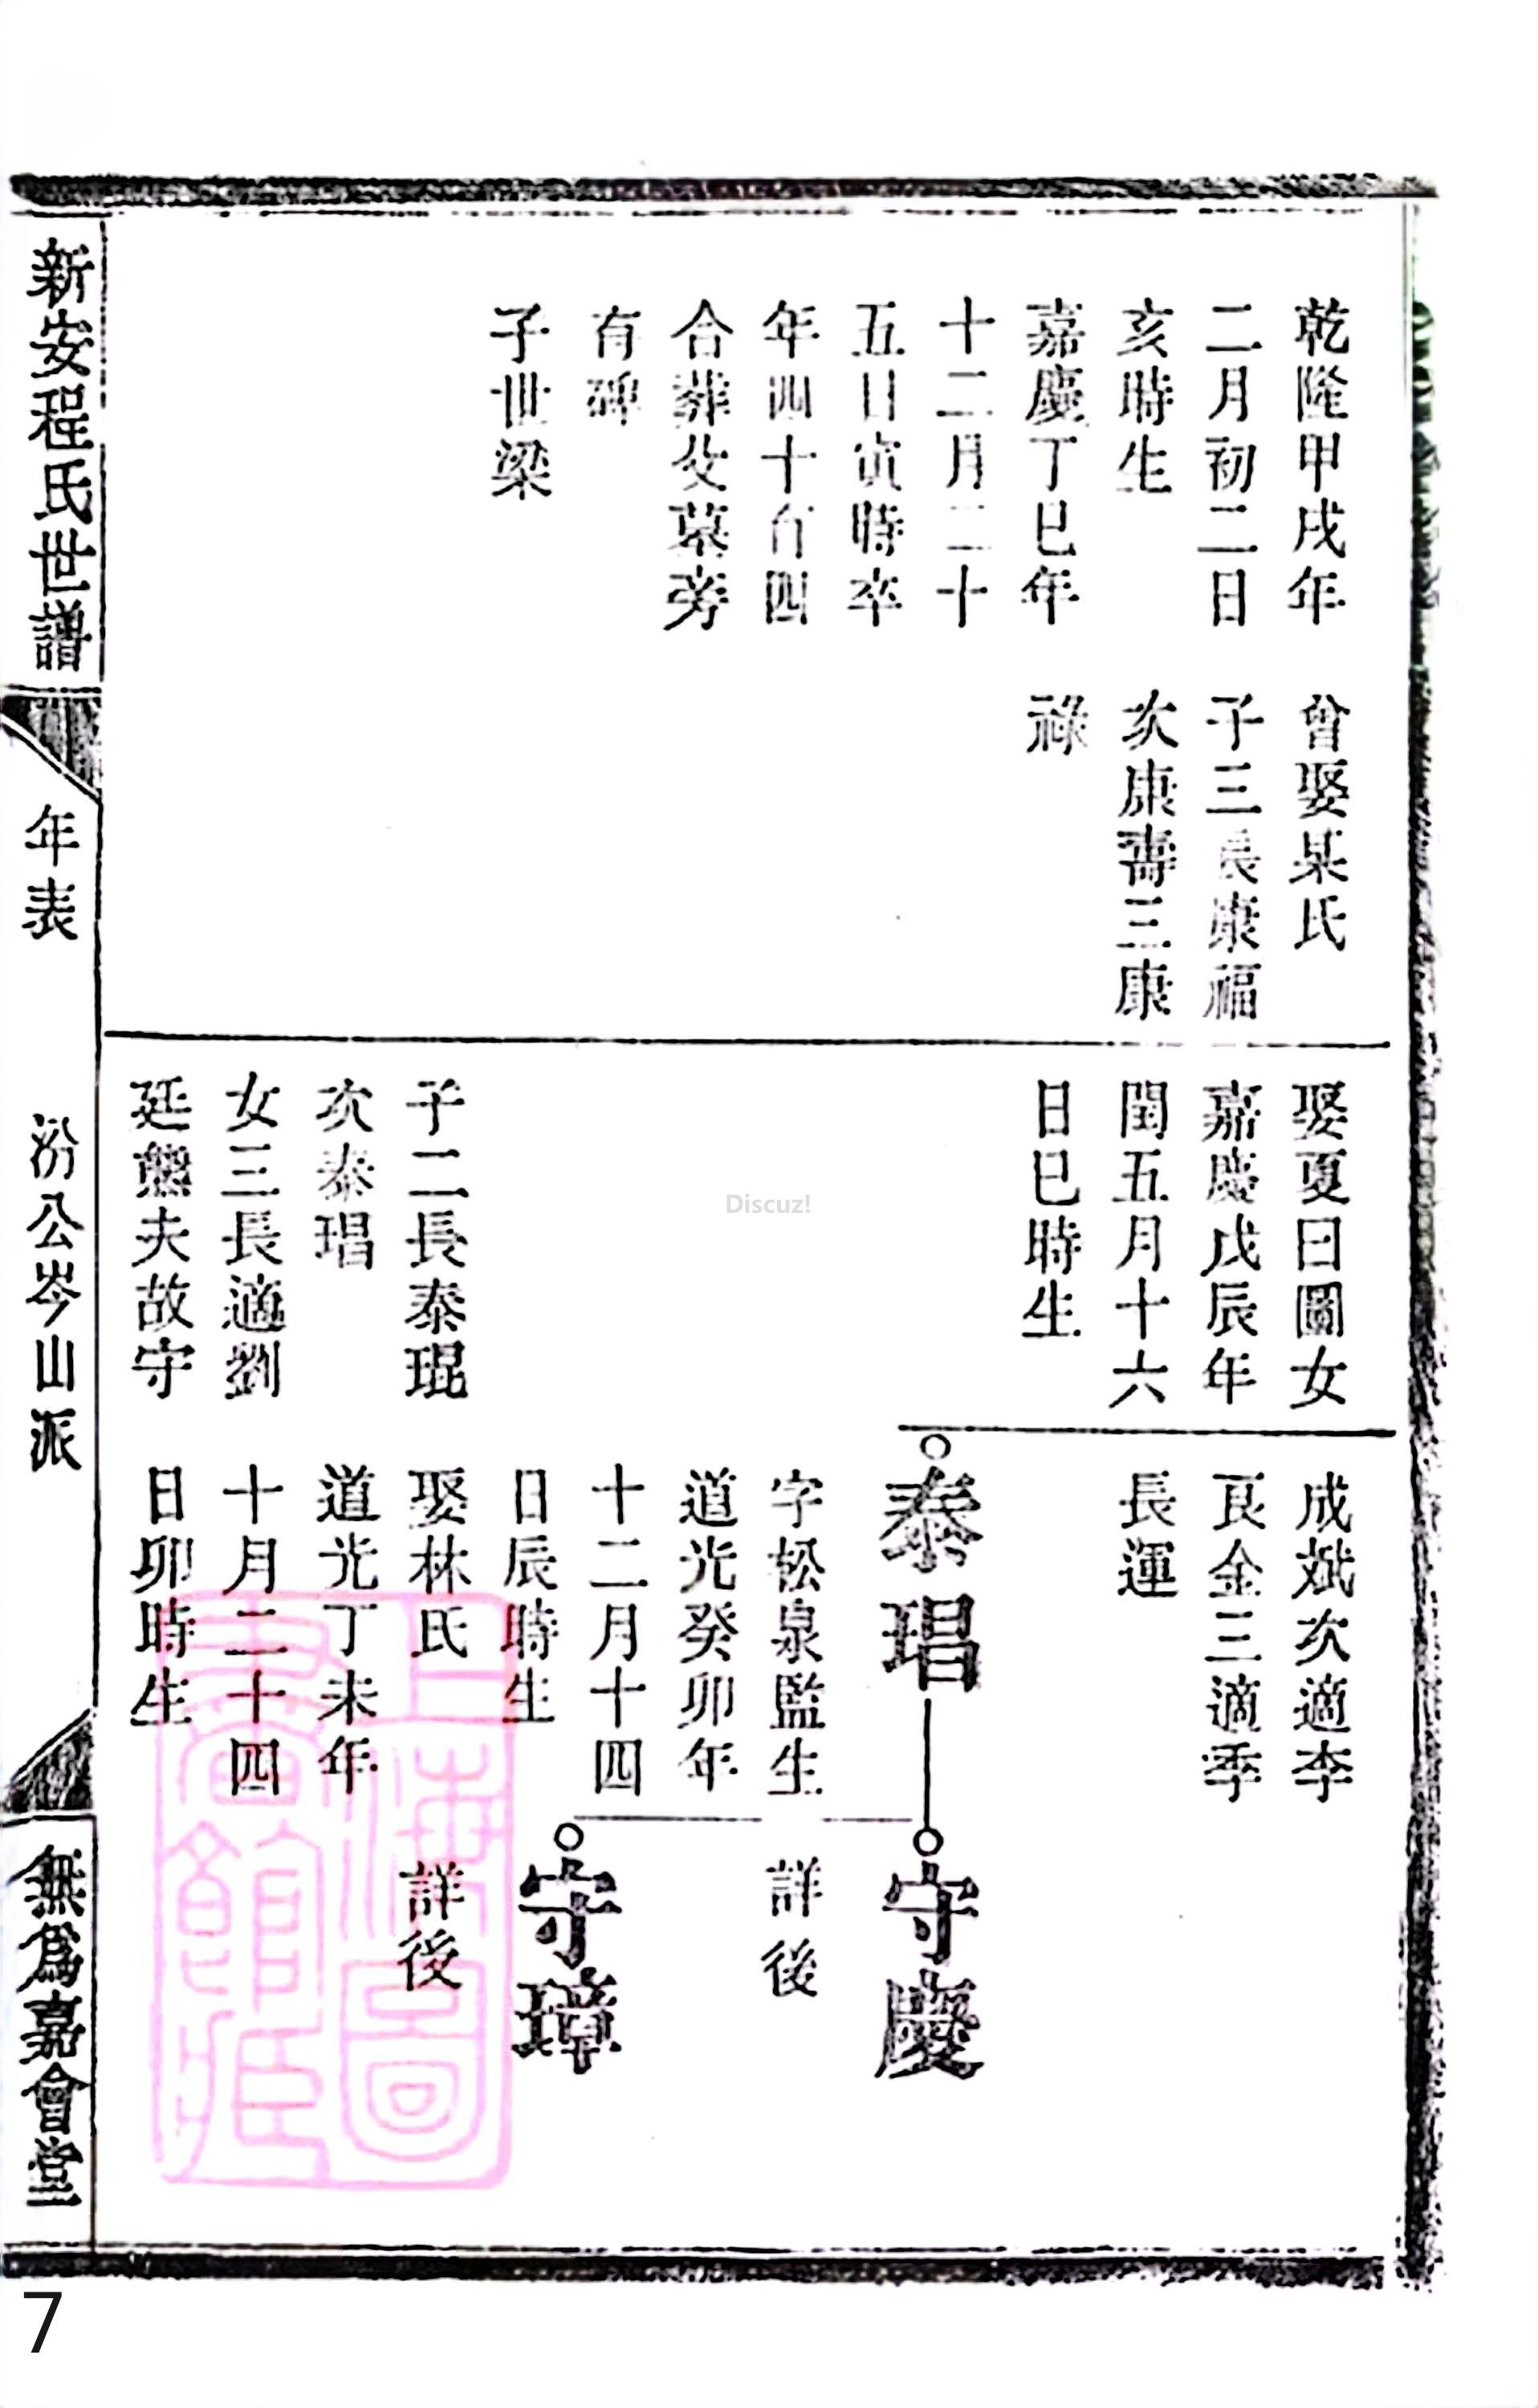 乾隆甲戌年
二月初二日
亥時生
嘉慶丁巳年
十二月二十
五日寅時卒
年四十有四
合葬父墓旁
有碑
子世梁
曾娶某氏
子三長康福
次康壽三康
祿
娶夏曰圖女
嘉慶戊辰年
閏五月十六
日巳時生
子二長泰琨
次泰琩
女三長適劉
廷熊夫故守
成斌次適李
良金三適季
長運
泰琩
字松泉監生
道光癸卯年
十二月十四
日辰時生
娶林氏
道光丁未年
十月二十四
日卯時生
守慶
詳後
守璋
詳後
新安程氏世譜
年表
汾公岑山派
無為嘉會堂
上海圖
書館藏
Discuz!
7